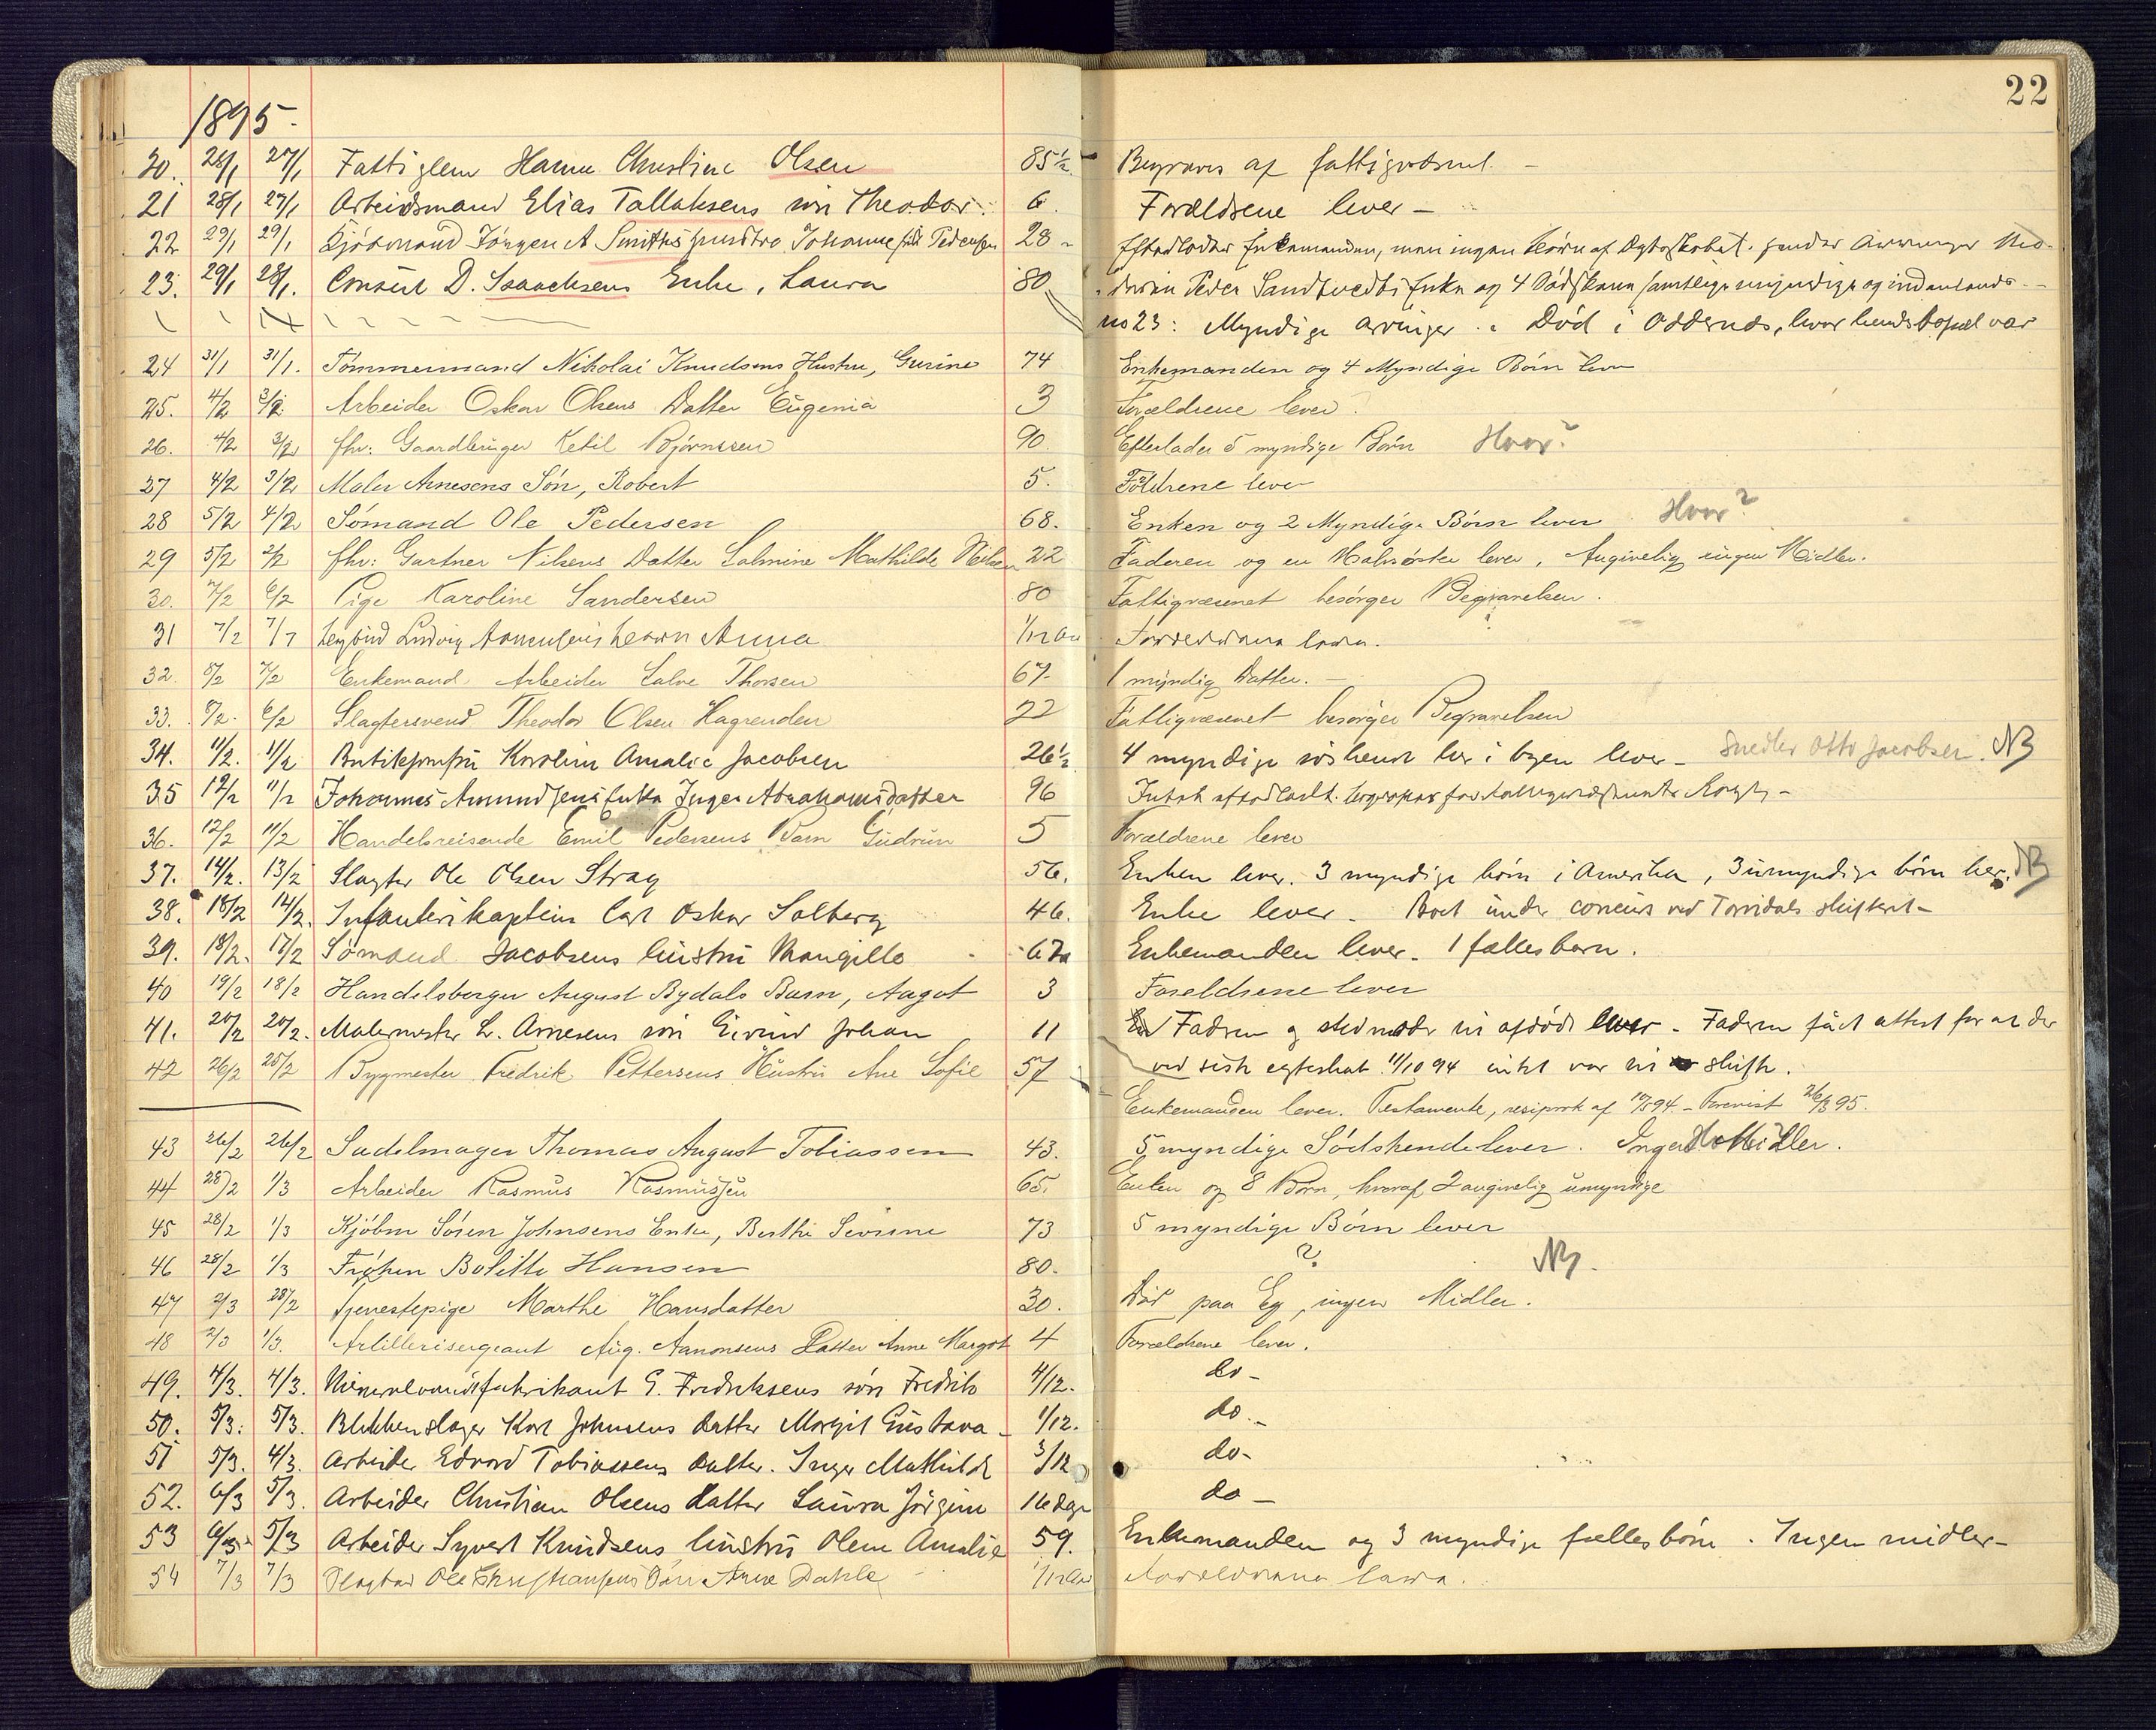 22
1895.
20. 28/1 27/1 Fattiglem Hanne Christine Olsen 85½ Begraves af fattigvæsenet. -
21 28/1 27/1 Arbeidsmand Elias Tallaksens søn Theodor. 6. Forældrene lever -
22 29/1 29/1 Kjøbmand Jørgen A Smiths hustro Johanne født Pedersen 28 - Efterlader Enkemanden, men ingen børn af Egteskabet.
Peder Sandtvedts Enke og 4 Sødskene samtlige myndige og indenlands. -
23. 29/1 28/1. Consul D. Isaachsens Enke, Laura 80
no 23: Myndige arvinger. Død i Oddernes, hvor hendes bopæl var
24 31/1 31/1. Tømmermand Nikolai Knudsens Hustru, Gurine 74 Enkemanden og 4 Myndige Børn lever
25. 4/2 3/2. Arbeider Oskar Olsens Datter Eugenia 3 Forældrene lever.
26. 4/2 3/2 fhv: Gaardbruger Ketil Bjørnssen 90. Efterlader 5 myndige Børn Hvor?
27 4/2 3/2 Maler Arnesens Søn, Robert 5. Fældrene lever
28 5/2 4/2 Sømand Ole Pedersen 68. Enken og 2 Myndige Børn lever Hvor?
29 5/2 2/2 fhv: Gartner Nilsens Datter Salmine Mathilde Nilsen 22 Faderen og en Halvsøster lever, Angivelig ingen Midler.
30. 7/2 6/2 Pige Karoline Sandersen 80 Fattigvæsenet besørger Begravelsen.
31 7/2 7/7 Ludvig barn Anna 1/12 Aar Forældrene lever.
32. 8/2 7/2 Enkemand Arbeider Salve Thorsen 67. 1 myndig Datter. -
33. 8/2. 6/2 Slagtersvend Theodor Olsen Hagrenden 22 Fattigvæsenet besørger Begravelsen
34. 11/2. 11/2 Butikjomfru Karoline Amalie Jacobsen 26½ 4 myndige søskende her i byen lever - Snedker Otto Jacobsen. NB
35 12/2 11/2 Johannes Amundsens Enke Inger Abrahamsdatter 96 Intet efterladt.
36. 12/2 11/2 Handelsreisende Emil Pedersens Barn Gudrun 5 Forældrene lever
37. 14/2. 13/2 Slagter Ole Olsen Stray 56. Enken lever. 3 myndige børn i Amerika, 3 umyndige børn her. NB
38. 18/2 14/2. Infanterikaptein Carl Oskar Solberg 46. Enke lever - Boet under concurs ved Torridals skifteret -
39. 18/2. 17/2 Sømand Jacobsens hustru Mangille 67 Enkemanden lever. 1 fællesbarn.
40 19/2 18/2 Handelsborger August Bydals Barn, Aagot 3 Foreldrene lever
41. 20/2 20/2. Malermester L. Arnesens søn Eivind Johan 11 Fadren og stedmoder til afdøde lever - Fadren fået attest for at der
ved sidste egteskab 11/10 94 intet var til skifte.
42 26/2 25/2 Bygmester Fredrik Pettersens Hustru Ane Sofie 57
Enkemanden lever. Testamente, resiprok af 10/5 94 - Forevist 26/3 95.
43 26/2 26/2 Sadelmager Thomas August Tobiassen 43. 5 myndige Sødskende lever. Ingen Midler.
44 28/2 1/3 Arbeider Rasmus Rasmussen 65. Enken og 8 Børn, hvoraf 2 angivelig umyndige
45 28/2 1/3 Kjøbm Søren Johnsens Enke, Berthe Sevrine 73 5 myndige Børn lever
46 28/2 1/3 Frøken Bolette Hansen 80. ? NB.
47 2/3 28/2 Tjenestepige Marthe Hansdatter 30. Død paa Eg, ingen Midler.
48 2/3 1/3. Artillerisergeant Aug. Aanonsens Datter Anne Margot 4 Forældrene lever.
49. 4/3. 4/3. Mineralvandsfabrikant G. Fredriksens søn Fredrik 4/12. do -
50. 5/3: 5/3. Blikkenslager Karl Johnsens datter Margit Gustava - 1/12. do. -
51 5/3. 4/3. Arbeider Edvard Tobiassens datter. Inger Mathilde 3/12 do -
52. 6/3 5/3. Arbeider Christian Olsens datter Laura Jørgine 16 dage do -
53 6/3. 5/3 Arbeider Syvert Knudsens hustru Olene Amalie 59. Enkemanden og 3 myndige fællesbørn. Ingen midler -
54 7/3 7/3 Slagter Ole Christiansens Barn Anne Dahle 1/12 Aar Forældrene lever.